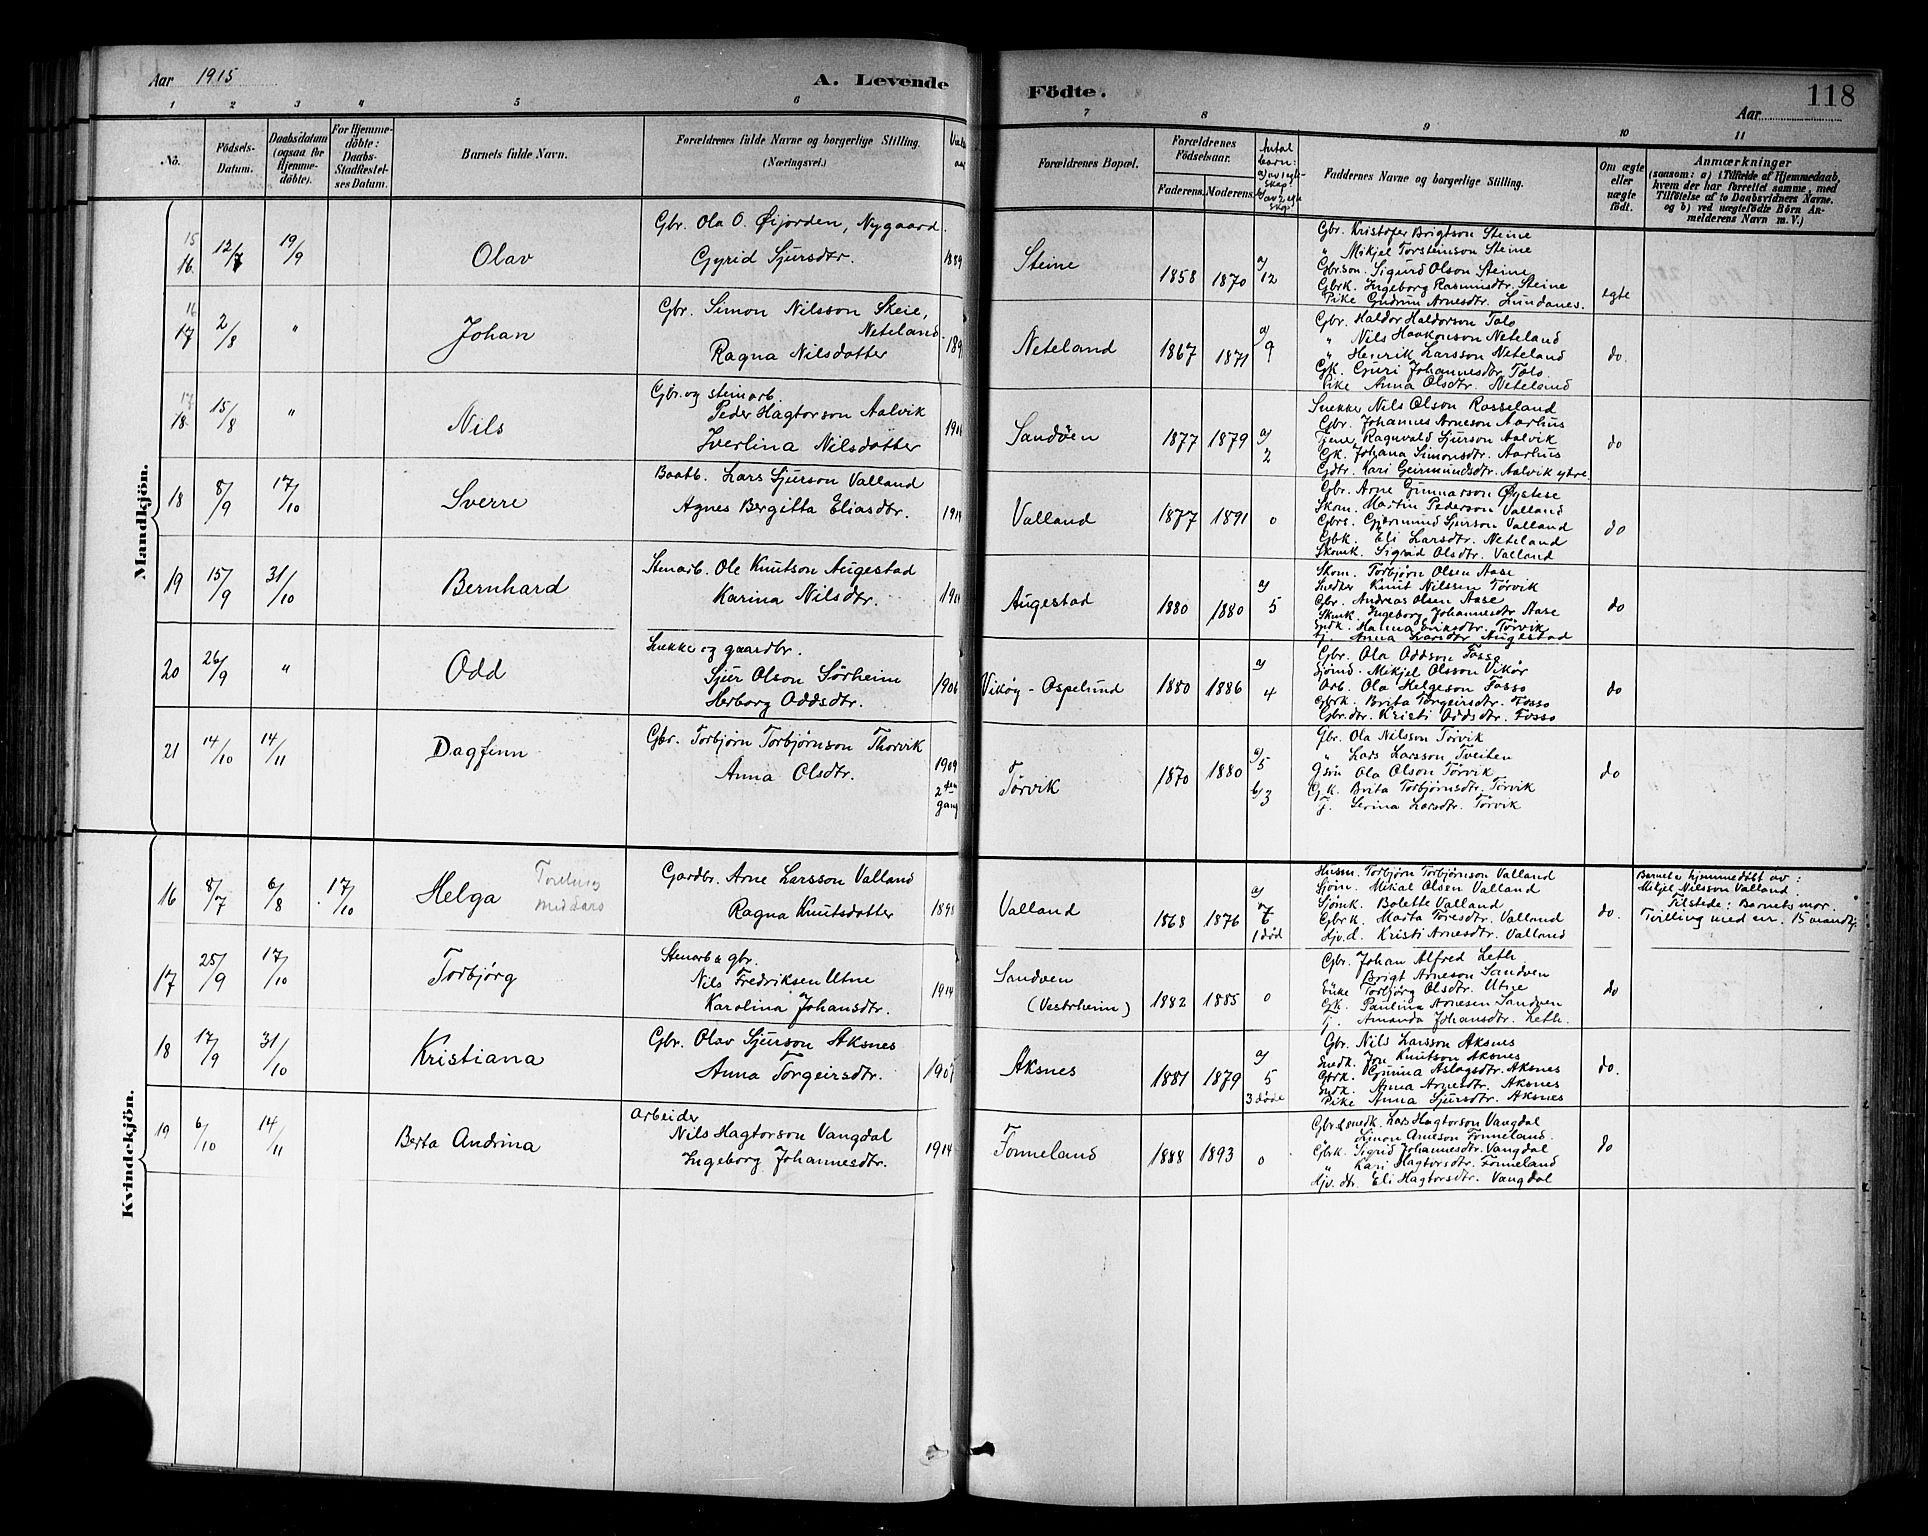 Aar 1915
A. Levende
Födte.
118
Aar
1 2 3 4 5 6
7 8 9 10 11
No.
Födsels-Datum.
Daabsdatum (ogsaa for Hjemme-döbte).
For Hjemme-döbte: Daabs-Stadfestel-ses Datum.
Barnets fulde Navn.
Forældrenes fulde Navne og borgerlige Stilling.
(Næringsvei.)
Forældrenes Bopæl.
Forældrenes Födselsaar.
Faderens. Moderens.
Antal barn:
Faddernes Navne og borgerlige Stilling.
Om ægte eller uægte födt.
Anmærkninger
(saasom: a) i Tilfælde af Hjemmedaab, hvem der har forrettet samme, med Tilföielse af to Daabsvidners Navne. og b) ved uægtefödte Börn An-melderens Navn m. V.)
Mandkjön.
15
16. 12/7 19/9 Olav
Gbr. Ola O. Øijorden, Nygaard.
Gyrid Sjursdtr. 1889
Steine 1858 1870 a/ 12
Gbr. Kristofer Brigtson Steine
" Mikjel Torsteinson Steine
Gbr.son. Sigurd Olson Steine
Gbrk. Ingeborg Rasmusdtr. Steine
Pike Gudrun Arnesdtr. Lundanes.
egte
16
17 2/8 " Johan
Gbr. Simon Nilsson Skeie,
Neteland.
Ragna Nilsdotter 189
Neteland 1867 1871 a/ 9
Gbr. Haldor Haldorson Tolo
" Nils Haakonson Neteland
" Henrik Larsson Neteland
Gk. Guri Johannesdtr Tolo
Pike Anna Olsdtr. Neteland
do.
17
18. 15/8 " Nils
Gbr. og steinarb.
Peder Hagtorson Aalvik
Iverlina Nilsdotter
Sandøen 1877 1879 a/ 2
Snekke Nils Olson Rosseland
Gbr. Johannes Arneson Aarhus
Tjener Ragnvald Sjurson Aalvik
Gk. Johana Simonsdtr. Aarhus
Gdtr. Kari Geirmundsdtr. Aalvik ytre
do
18 8/9 17/10 Sverre
Baatb. Lars Sjurson Valland
Agnes Bergitta Eliasdtr. 1914
Valland 1877 1891 0
Gbr. Arne Gunnarson Øystese
Skom. Martin Pederson Valland
Gbrs. Gjermund Sjurson Valland
Gbk. Eli Larsdtr. Neteland
Skomk. Sigrid Olsdtr. Valland
do
19 15/9 31/10 Bernhard
Stenarb. Ole Knutson Augestad
Karina Nilsdtr.
Augestad 1880 1880 a/ 5
Skom. Torbjørn Olsen Aase
Snedker Knut Nilssen Tørvik
Gbr. Andreas Olsen Aase
Skmk. Ingeborg Johannesdtr Aase
Sndk. Halina Eriksdtr. Tørvik
Tj. Anna Larsdtr Augestad
do
20 26/9 " Odd
Snekke og gaardbr.
Sjur Olson Sørheim
Herborg Oddsdtr. 1906
Vikøy - Ospelund 1880 1886 a/ 4
Gbr. Ola Oddson Fosso
Sjömd. Mikjel Olsson Vikør
Arb. Ola Helgeson Fosso
Gbrk. Brita Torgeirsdtr. Fosso
Gbr.dtr. Kristi Oddsdtr. Fosso
do
21 14/10 14/11 Dagfinn
Gbr. Torbjørn Torbjørnson Thorvik
Anna Olsdtr. 1909
2den gang
Tørvik 1870 1880 a/ 5 b/ 3
Gbr. Ola Nilsson Tørvik
" Lars Larsson Tveiten
Gsön Ola Olson Tørvik
G.k. Brita Torbjørnsdtr. Tørvik
J. Serina Larsdtr. Tørvik
do
Kvindekjön.
16 8/7 6/8 17/10 Helga
Gardbr. Arne Larsson Valland
Ragna Knutsdotter 1898
Valland 1868 1876 a/ 7 6 1 død
Husm. Torbjørn Torbjørnson Valland
Sjöm. Mikal Olsen Valland
Sjömk. Bolette Valland
Gbrk. Marta Toresdtr. Valland
Hjv.d. Kristi Arnesdtr. Valland
do.
Barnet er hjemmedøbt av:
Mikjel Nilsson Valland.
Tilstede: Barnets mor.
Tvilling med nr. 15 mandkj.
17 25/9 17/10 Torbjørg
Stenarb & gbr.
Nils Fredriksen Utne
Karolina Johansdtr. 1914
Sandven
(Vestrheim) 1882 1885 0
Gbr. Johan Alfred Leth
Brigt Arneson Sandven
Enke Torbjørg Olsdtr. Utne
Gk. Paulina Arnesen Sandven
J. Amanda Johansdtr. Leth.
do
18 17/9 31/10 Kristiana
Gbr. Olav Sjurson Aksnes
Anna Torgeirsdtr.
Aksnes 1881 1879 a/ 5 3 døde
Gbr. Nils Larsson Aksnes
Snedk. Jon Knutson Aksnes
Gbrk. Gunna Aslagsdtr. Aksnes
Sndk. Anna Arnesdtr. Aksnes
Pike Anna Sjursdtr. Aksnes
do.
19 6/10 14/11 Berta Andrina
Arbeider
Nils Hagtorson Vangdal
Ingeborg Johannesdtr. 1914
Fonneland 1888 1893 0
Gbr & snedk. Lars Hagtorson Vangdal
Simon Arneson Fonneland.
Gbrk. Sigrid Johannesdtr. Vangdal
" Kari Hagtorsdtr. Fonneland
Hjv. dtr. Eli Hagtorsdtr. Vangdal
do